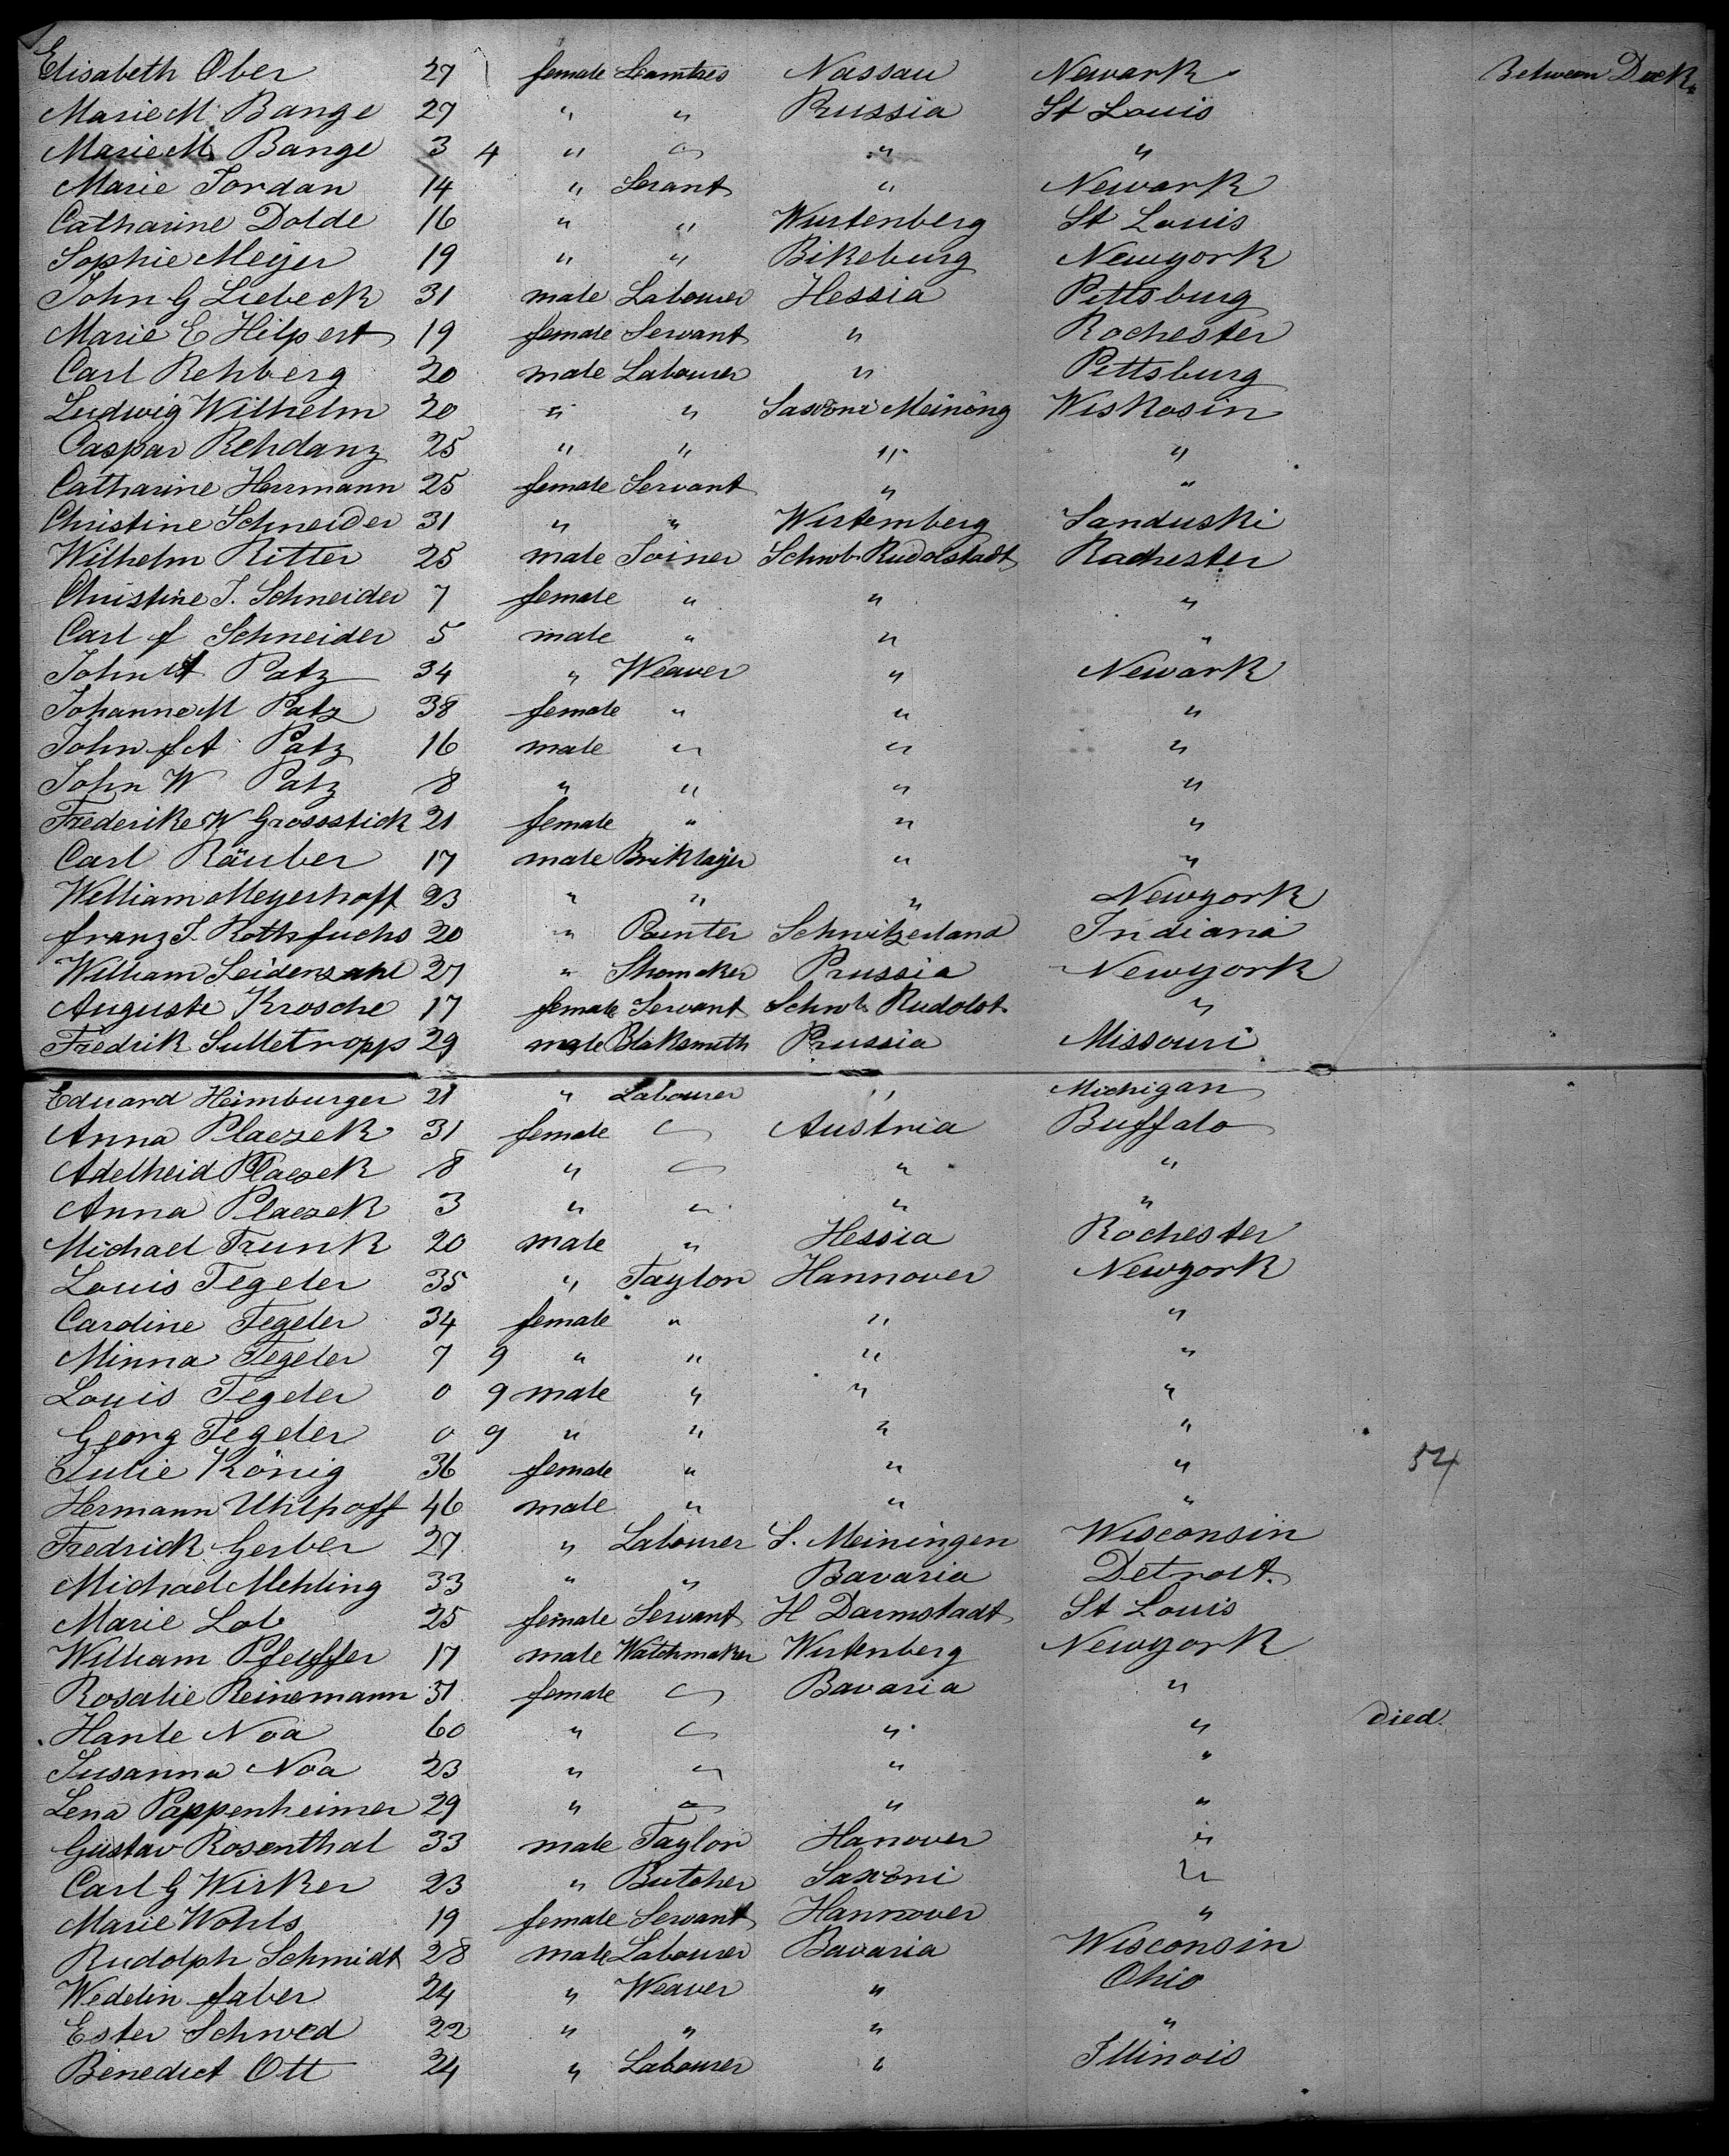 Elisabeth Ober 27 female Seamtres Nassau Newark Between Deck
Marie M. Bange 27 " " Prussia St Louis
Marie M. Bange 3 4 " " " "
Marie Jordan 14 " Serant " Newark
Catharine Dolde 16 " " Wurtenberg St Louis
Sophie Meijer 19 " " Bikeburg Newyork
John G Liebeck 31 male Labourer Hessia Pittsburg
Marie E Hilpert 19 female Servant " Rochester
Carl Rehberg 20 male Labourer " Pittsburg
Ludwig Wilhelm 20 " " Saxoni Meinong Wiskosin
Caspar Rehdanz 25 " " " "
Catharine Herrmann 25 female Servant " "
Christine Schneider 31 " " Wirtemberg Sanduski
Wilhelm Ritter 25 male Joiner Schwb. Rudolstadt Rochester
Christine J. Schneider 7 female " " "
Carl f Schneider 5 male " " "
John A Patz 34 " Weaver " Newark
Johanne M Patz 38 female " " "
John f A Patz 16 male " " "
John W Patz 8 " " " "
Frederike W Grossstick 21 female " " "
Carl Räuber 17 male Briklayer " "
William Meyerhoff 23 " " " Newyork
franz J. Rothsfuchs 20 " Painter Schwitzerland Indiana
William Seidenzahl 27 " Shomaker Prussia Newyork
Auguste Krosche 17 female Servant Schwb Rudolst "
Fredrik Sulletropp 29 male Blaksmith Prussia Missouri
Eduard Heimburger 21 " Labourer " Michigan
Anna Placzek 31 female " Austria Buffalo
Adelheid Placzek 8 " " " "
Anna Placzek 3 " " " "
Michael Trunk 20 male " Hessia Rochester
Louis Tegeler 35 " Taylor Hannover Newyork
Caroline Tegeler 34 female " " "
Minna Tegeler 7 9 " " " "
Louis Tegeler 0 9 male " " "
Georg Tegeler 0 9 " " " "
Julie König 36 female " " " 54
Hermann Uhlhoff 46 male " " "
Fredrick Gerber 27 " Labourer S. Meiningen Wisconsin
Michael Mehling 33 " " Bavaria Detroit.
Marie Lob 25 female Servant H Darmstadt St Louis
William Pfeiffer 17 male Watchmaker Wirtenberg Newyork
Rosalie Reinemann 31 female " Bavaria "
Hanle Noa 60 " " " " died.
Susanna Noa 23 " " " "
Lena Pappenheimer 29 " " " "
Gustav Rosenthal 33 male Taylor Hanover "
Carl G Wirker 23 " Butcher Saxoni "
Marie Wohls 19 female Servant Hannover "
Rudolph Schmidt 28 male Labourer Bavaria Wisconsin
Wedelin faber 24 " Weaver " Ohio
Ester Schwed 22 " " " "
Benedict Ott 24 " Labourer " Illinois